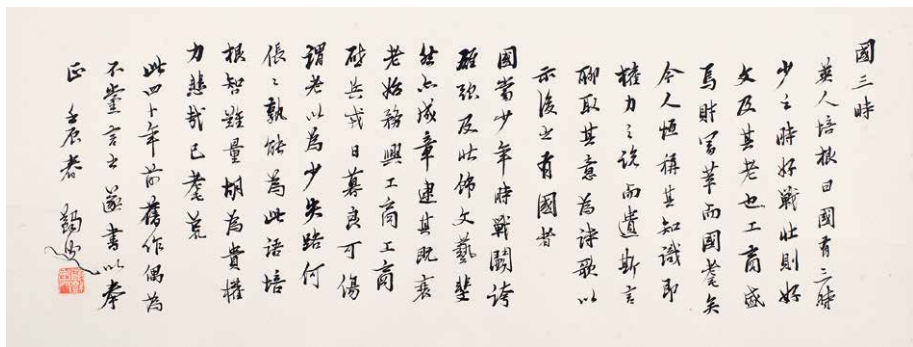 國三時
英人培根曰國有三時
少之時好戰壯則好
文及其老也工商盛
焉財富萃而國耄矣
今人恆稱其知識即
權力之說而遺斯言
聊取其意為詩歌以
示後之有國者
國當少年時戰鬭誇
雄強及壯佈文藝斐
然亦成章逮其既衰
老始務興工商工商
兵戎日暮良可傷
謂老以為少失路何
倀〻孰能為此語培
根智難量胡為貴權
力悲哉已耄荒
此四十年前舊作偶為
不黨言之遂書以奉
正 壬辰春